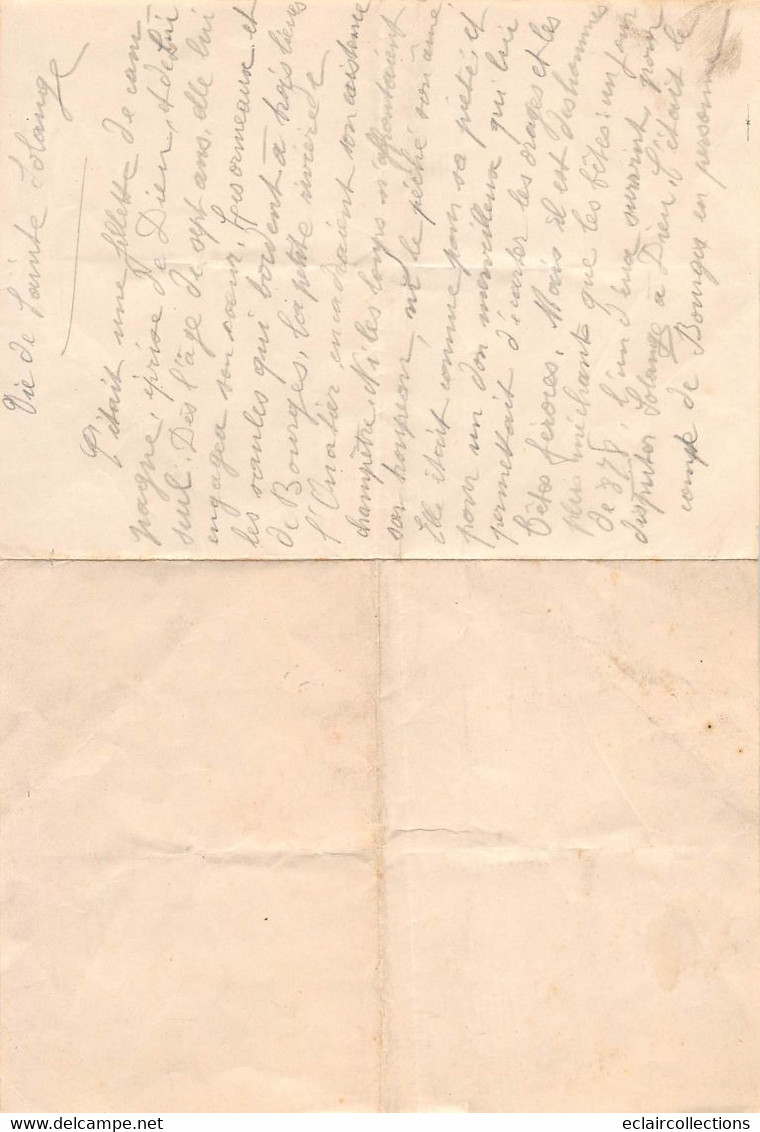 Vie de Sainte Solange
C'était une fillette de cam-
pagne, éprise de Dieu, et de Lui
seul. Dès l'âge de sept ans, elle lui
engagea son cœur. Les ormeaux et
les saules qui bordent à trois lieues
de Bourges, la petite rivière de
l'Ouatier encadraient son existence
champêtre. Ni les loups n'affrontaient
son troupeau, ni le péché son âme
Elle était connue pour sa piété et
pour un don merveilleux qui lui
permettait d'écarter les orages et les
bêtes féroces. Mais il est des hommes
plus méchants que les bêtes: un jour
de 878, l'un d'eux survint pour
disputer Solange à Dieu, c'était le
comte de Bourges en personne
eclaircollections